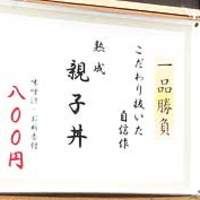 一品勝負
こだわり抜いた
自信作
熟成
親子丼
味噌汁・お新香付
八〇〇円